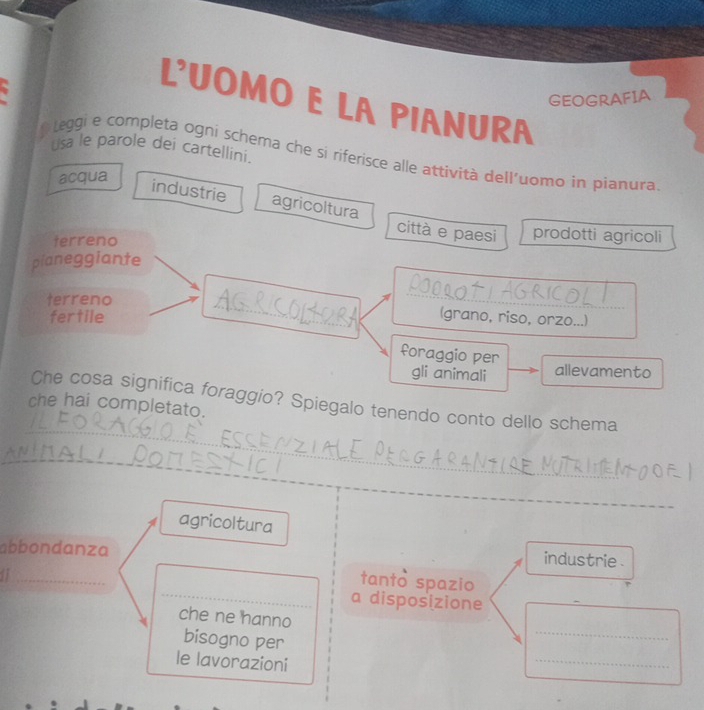 L'UOMO E LA PIANURA
GEOGRAFIA
Leggi e completa ogni schema che si riferisce alle attività dell'uomo in pianura.
Usa le parole dei cartellini.
acqua
industrie
agricoltura
città e paesi
prodotti agricoli
terreno
pianeggiante
terreno
fertile
AGRICOLTURA
PODROTI AGRICOLI
(grano, riso, orzo...)
foraggio per
gli animali
allevamento
Che cosa significa foraggio? Spiegalo tenendo conto dello schema
che hai completato.
IL FORAGGIO È ESSENZIALE PERGARANTIRE NUTRIMENTO DEI
ANIMALI DOMESTICI
abbondanza
di
agricoltura
che ne hanno
bisogno per
le lavorazioni
tanto spazio
a disposizione
industrie